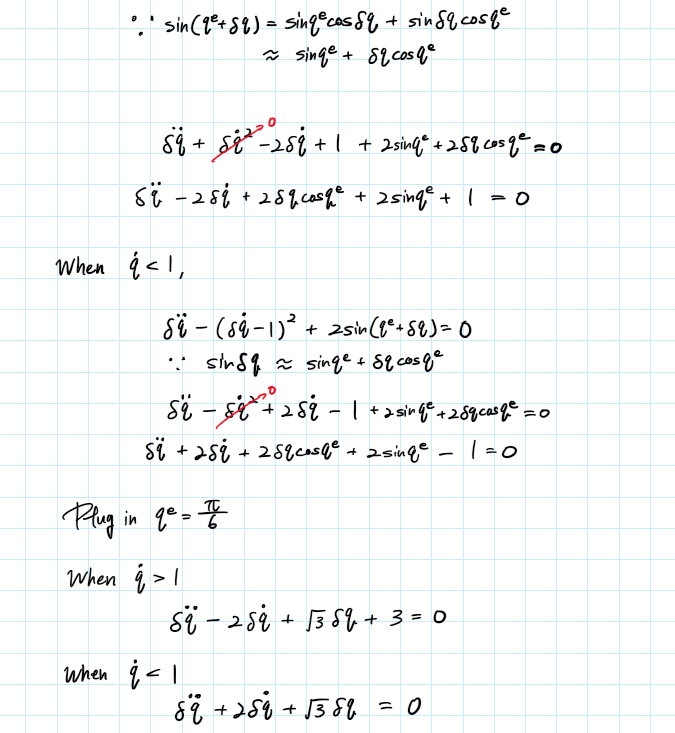 ∵ sin(qᵉ+δq) = sinqᵉcosδq + sinδqcosqᵉ
≈ sinqᵉ + δqcosqᵉ
δq̈ + δq̇² - 2δq̇ + 1 + 2sinqᵉ + 2δqcosqᵉ = 0
0
δq̈ - 2δq̇ + 2δqcosqᵉ + 2sinqᵉ + 1 = 0
When q̇ < 1,
δq̈ - (δq̇ - 1)² + 2sin(qᵉ+δq) = 0
∵ sinδq ≈ sinqᵉ + δqcosqᵉ
δq̈ - δq̇² + 2δq̇ - 1 + 2sinqᵉ + 2δqcosqᵉ = 0
0
δq̈ + 2δq̇ + 2δqcosqᵉ + 2sinqᵉ - 1 = 0
Plug in qᵉ = π/6
When q̇ > 1
δq̈ - 2δq̇ + √3 δq + 3 = 0
When q̇ < 1
δq̈ + 2δq̇ + √3 δq = 0